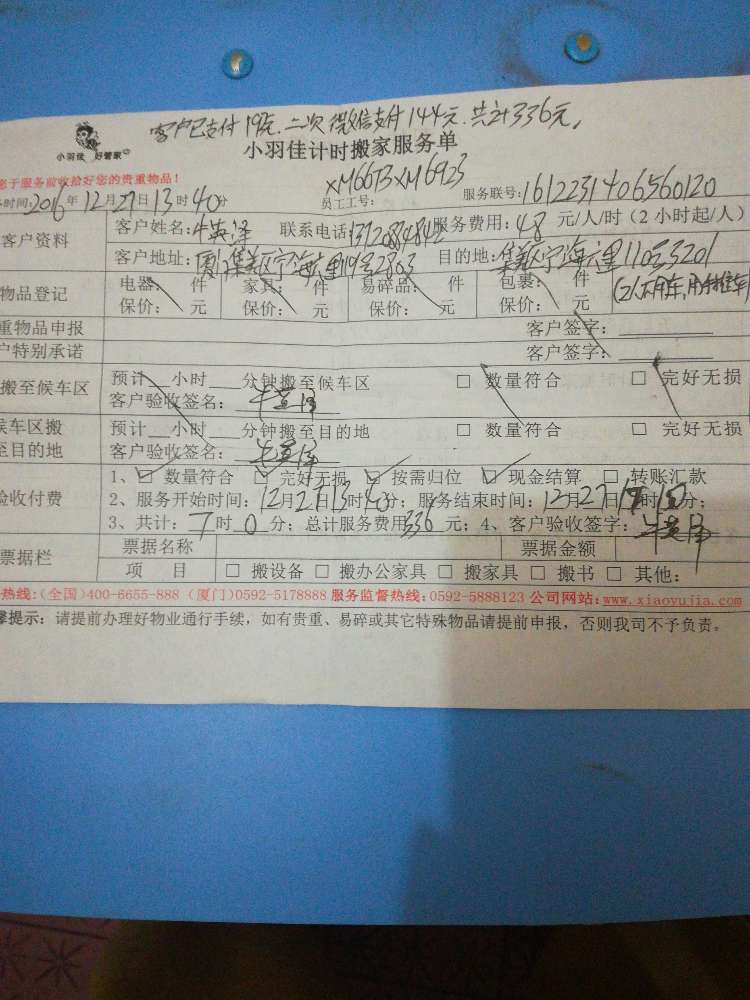 客户已支付192元.二次微信支付144元.共计336元.
小羽佳 好管家
小羽佳计时搬家服务单
于服务前收拾好您的贵重物品!
时间:2016年12月27日13时40分 员工工号: XM6673 XM6923 服务联号:1612231406560120
客户资料
客户姓名: 联系电话: 服务费用:48元/人/时(2小时起/人)
客户地址: 集美区宁海 目的地:集美区宁海 里110号3201
物品登记
电器: 件 家具: 件 易碎品: 件 包裹: 件
保价: 元 保价: 元 保价: 元 保价: 元
重物品申报 客户签字:
户特别承诺 客户签字:
搬至候车区
预计 小时 分钟搬至候车区 □ 数量符合 □ 完好无损
客户验收签名:
候车区搬至目的地
预计 小时 分钟搬至目的地 □ 数量符合 □ 完好无损
客户验收签名:
验收付费
1、☑ 数量符合 ☑ 完好无损 ☑ 按需归位 ☑ 现金结算 □ 转账汇款
2、服务开始时间:12月27日13时40分; 服务结束时间:12月27日 时 分;
3、共计: 时0分; 总计服务费用336元; 4、客户验收签字:
票据栏
票据名称 票据金额
项 目 □ 搬设备 □ 搬办公家具 □ 搬家具 □ 搬书 □ 其他:
热线:(全国)400-6655-888 (厦门)0592-5178888 服务监督热线:0592-5888123 公司网站:www.xiaoyujia.com
提示: 请提前办理好物业通行手续,如有贵重、易碎或其它特殊物品请提前申报,否则我司不予负责。